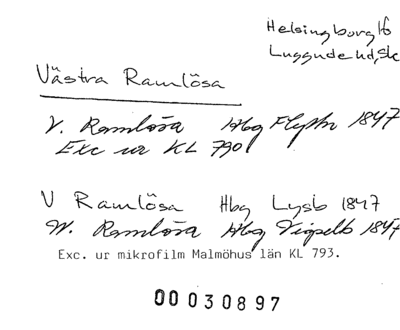 Helsingborg lfs
Luggude hd, Sk
Västra Ramlösa
V. Ramlösa Hbg Flyttn 1847
Exc ur KL 790
V Ramlösa Hbg Lysb 1847
V. Ramlösa Hbg Vigselb 1847
Exc. ur mikrofilm Malmöhus län KL 793.
00030897